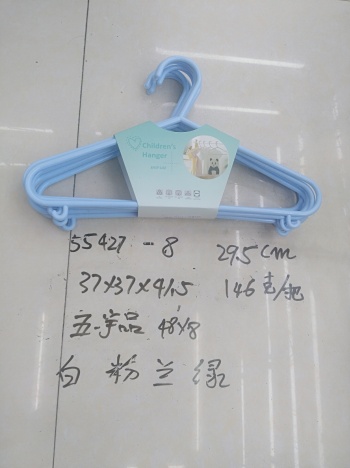 Children's
Hanger
55427 - 8 29.5cm
37X37X41.5 146克/把
48X8
白 粉 兰 绿